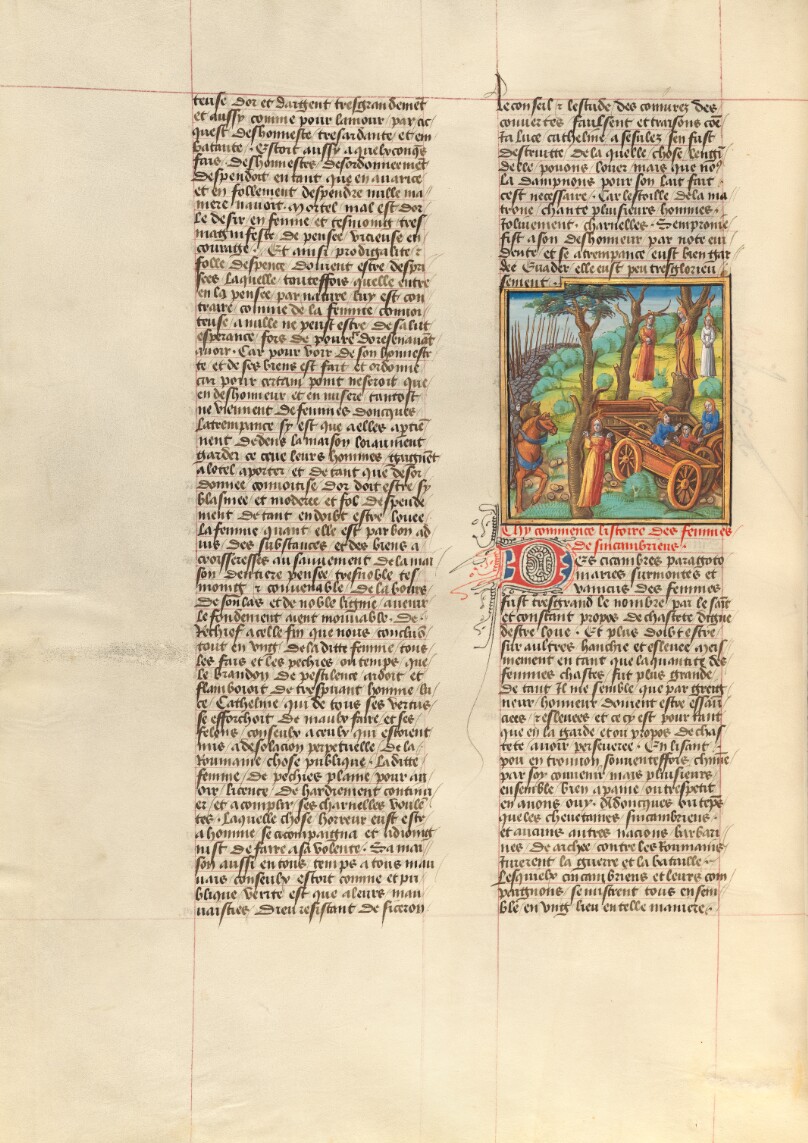 teuse dor et dargent tresgrandement
et aussy comme pour lamour par ac
quest deshonneste tresardante et em
batante. Estoit aussy a quelxconques
fais deshonnestes desordonneement
despendoit en tant que en auarice
et en follement despendre nulle ma
niere nauoit. Mortel mal est dor
le desir en femme et tesmoing tres
magnifeste de pensee vicieuse en
courage. Et ainsi prodigalite et
folle despence doiuent estre despri
sees laquelle touteffois quelle entre
en la pensee par nature luy est con
traire comme de la femme conuoi
teuse a nulle ne peust estre de salut
esperance fors de poure doresenauant
auoir. Car pour voir de son honneste
te et de ses biens est fait et ordonne
car pour certain point neseroit que
en deshonneur et en misere tantost
ne viennent de femmes doncques
latrempance sy est que a elles aptie
nent dedens la maison loiaument
garder ce que leurs hommes gaignent
a lotel aporter et de tant que desor
donnee conuoitise dor doit estre sy
blasmee et moderee et fol despende
ment de tant en doibt estre louee
la femme quant elle est par bon ad
uis des substances et des biens a
croisseresses au sauuement de la mai
son dentiere pensee tresnoble tes
moing et conuenable de labours
de soulas et de noble ligne auenir
le fondement aient mouuable. De
rechief a celle fin que nous conclus
tout en vng de laditte femme tous
les fais et les pechies ou temps que
le brandon de pestilence ardoit et
flamboioit de trespuant homme lu
ce Cathelme qui de tous ses vertus
se efforchoit de maulx faire et ses
felons conseulx a ceulx qui estoient
mis a desolacion perpetuelle de la
Roumaine chose publique. Laditte
femme de pechies plaine pour au
oir licence de hardiement continu
er et acomplir ses charnelles voulen
tes. Laquelle chose horreur eust este
a homme se acompaigna et adioing
nist de faire a sa volente. Sa mai
son aussi en tous temps a tous mau
uais conseulx estoit comme et pu
blique verite est que a leurs mau
uaisties dieu resistant de siceron
le conseil et lestude des conurez des
couuertes faulsent et traisons coe
ta luce cathelme a fesulez sen fust
destruitte de la quelle chose lengi
delle pouons louer mais que nous
la dampnons pour son lait fait
cest necessaire. Car lestoille de la ma
trone chante plusieurs hommes
toluement charnelles. Sempronie
fist a son deshonneur par note eui
dente et se atrempance eust bien gar
dee euader elle eust peu tresglorieu
sement.
Chy commence listoire des femmes
de sincambriens.
Des cicambres par agoto
maries surmontes et
vaincus des femmes
fust tresgrand le nombre par le saint
et constant propos de chastete digne
destre loue. Et plus doibt estre
sur aultres haucie et esleuee mes
mement en tant que la quantite des
femmes chastes fut plus grande
de tant Il me semble que par greig
neur honneur doiuent estre essau
ciees et esleuees et ce cy est pour tant
que en la garde et ou propos de chas
tete auoir perseueree. En lisant
pou en treuuon souuenteffois chme
par soy conuenir mais plusieurs
ensemble bien a paine ou trespetit
en auons ouy. Adoncques ou temps
que les cheuetaines sincambriens
et aucuns autres nacions barbari
nes de archee contre les roumains
iurerent la guerre et la bataille.
Lesquelx cincambriens et leurs com
paignons se mistrent tous ensem
ble en vng lieu en telle maniere.